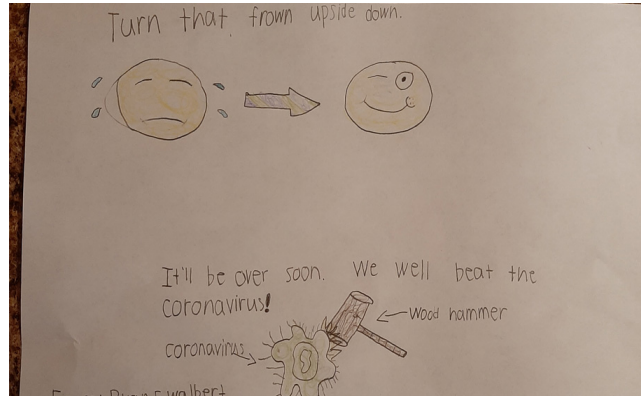 Turn that frown upside down.
It'll be over soon. We well beat the
coronavirus!
Wood hammer
coronavirus